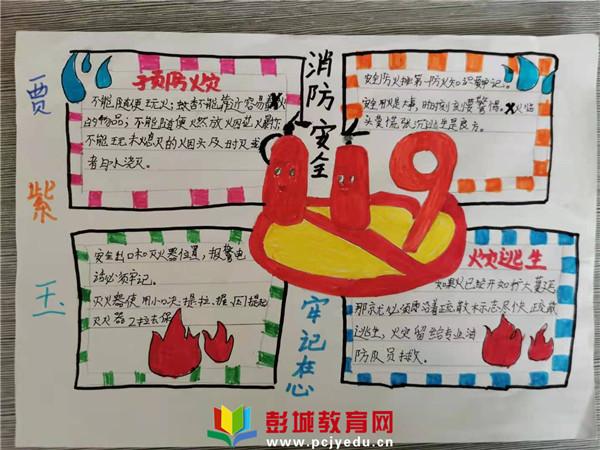 贾紫玉
消防安全
牢记在心
预防火灾
不能随便玩火,故者不能靠近容易着火
的物品,不能随便燃放烟花火爆作
不能玩未熄灭的烟头及时灭
者用水浇灭。
安全防火排第一防火知识要牢记。
安全用火是大事,时时刻刻要警惕。火临
头莫慌张沉逃生是良方。
119
安全出口和灭火器位置,报警电
话必须牢记。
灭火器使用小口决提拉、握、压
灭火器
火灾逃生
如果火已经开始扩大蔓延
那就必须沿着正
逃生,火灾留给专业消
防队员扑救。
彭城教育网
www.pcjyedu.cn